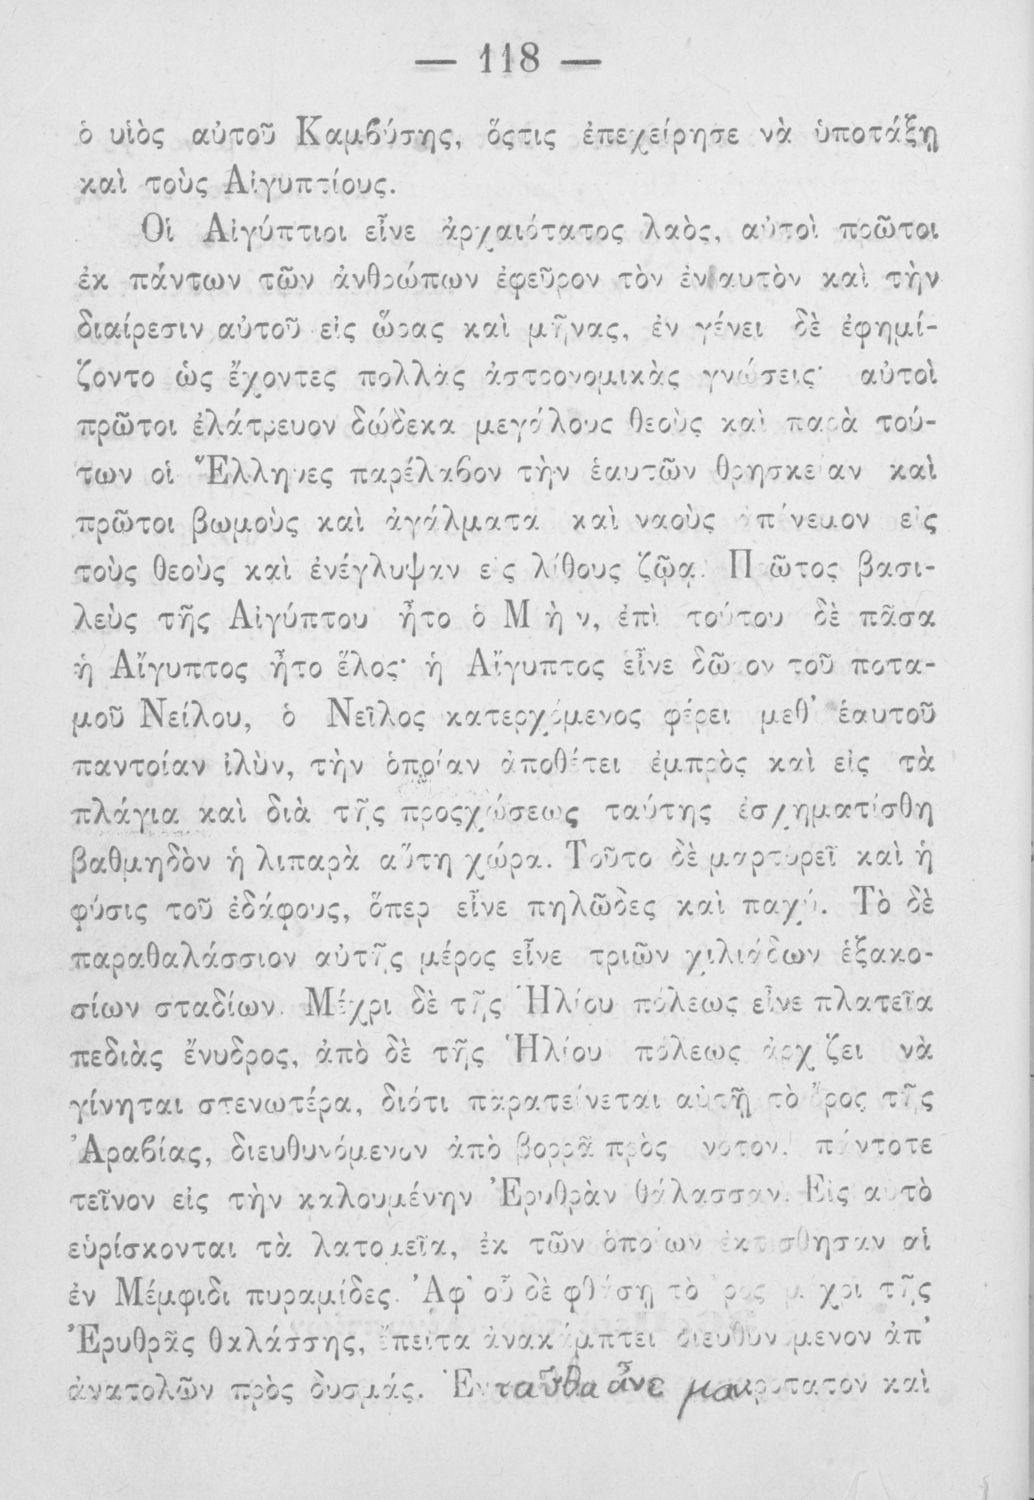 — 118 —
ὁ υἱὸς αὐτοῦ Καμβύσης, ὅςτις ἐπεχείρησε νὰ ὑποτάξῃ
καὶ τοὺς Αἰγυπτίους.
Οἱ Αἰγύπτιοι εἶνε ἀρχαιότατος λαὸς, αὐτοὶ πρῶτοι
ἐκ πάντων τῶν ἀνθρώπων ἐφεῦρον τὸν ἐνιαυτὸν καὶ τὴν
διαίρεσιν αὐτοῦ εἰς ὥρας καὶ μῆνας, ἐν γένει δὲ ἐφημί-
ζοντο ὡς ἔχοντες πολλὰς ἀστρονομικὰς γνώσεις· αὐτοὶ
πρῶτοι ἐλάτρευον δώδεκα μεγάλους θεοὺς καὶ παρὰ τού-
των οἱ Ἕλληνες παρέλαβον τὴν ἑαυτῶν θρησκείαν καὶ
πρῶτοι βωμοὺς καὶ ἀγάλματα καὶ ναοὺς ἀπένεμον εἰς
τοὺς θεοὺς καὶ ἐνέγλυψαν εἰς λίθους ζῷα. Πρῶτος βασι-
λεὺς τῆς Αἰγύπτου ἦτο ὁ Μὴν, ἐπὶ τούτου δὲ πᾶσα
ἡ Αἴγυπτος ἦτο ἕλος· ἡ Αἴγυπτος εἶνε δῶρον τοῦ ποτα-
μοῦ Νείλου, ὁ Νεῖλος κατερχόμενος φέρει μεθ' ἑαυτοῦ
παντοίαν ἰλὺν, τὴν ὁποίαν ἀποθέτει ἐμπρὸς καὶ εἰς τὰ
πλάγια καὶ διὰ τῆς προςχώσεως ταύτης ἐσχηματίσθη
βαθμηδὸν ἡ λιπαρὰ αὕτη χώρα. Τοῦτο δὲ μαρτυρεῖ καὶ ἡ
φύσις τοῦ ἐδάφους, ὅπερ εἶνε πηλῶδες καὶ παχύ. Τὸ δὲ
παραθαλάσσιον αὐτῆς μέρος εἶνε τριῶν χιλιάδων ἑξακο-
σίων σταδίων. Μέχρι δὲ τῆς Ἡλίου πόλεως εἶνε πλατεῖα
πεδιὰς ἔνυδρος, ἀπὸ δὲ τῆς Ἡλίου πόλεως ἀρχίζει νὰ
γίνηται στενωτέρα, διότι παρατείνεται αὐτῇ τὸ ὄρος τῆς
Ἀραβίας, διευθυνόμενον ἀπὸ βορρᾶ πρὸς νότον, πάντοτε
τεῖνον εἰς τὴν καλουμένην Ἐρυθρὰν θάλασσαν. Εἰς αὐτὸ
εὑρίσκονται τὰ λατομεῖα, ἐκ τῶν ὁποίων ἐκτίσθησαν αἱ
ἐν Μέμφιδι πυραμίδες. Ἀφ' οὗ δὲ φθάσῃ τὸ ὄρος μέχρι τῆς
Ἐρυθρᾶς θαλάσσης, ἔπειτα ἀνακάμπτει διευθυνόμενον ἀπ'
ἀνατολῶν πρὸς δυσμάς. Ἐνταῦθα εἶνε μακρότατον καὶ